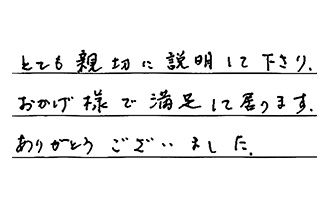 とても親切に説明して下さり、
おかげ様で満足して居ります。
ありがとうございました。